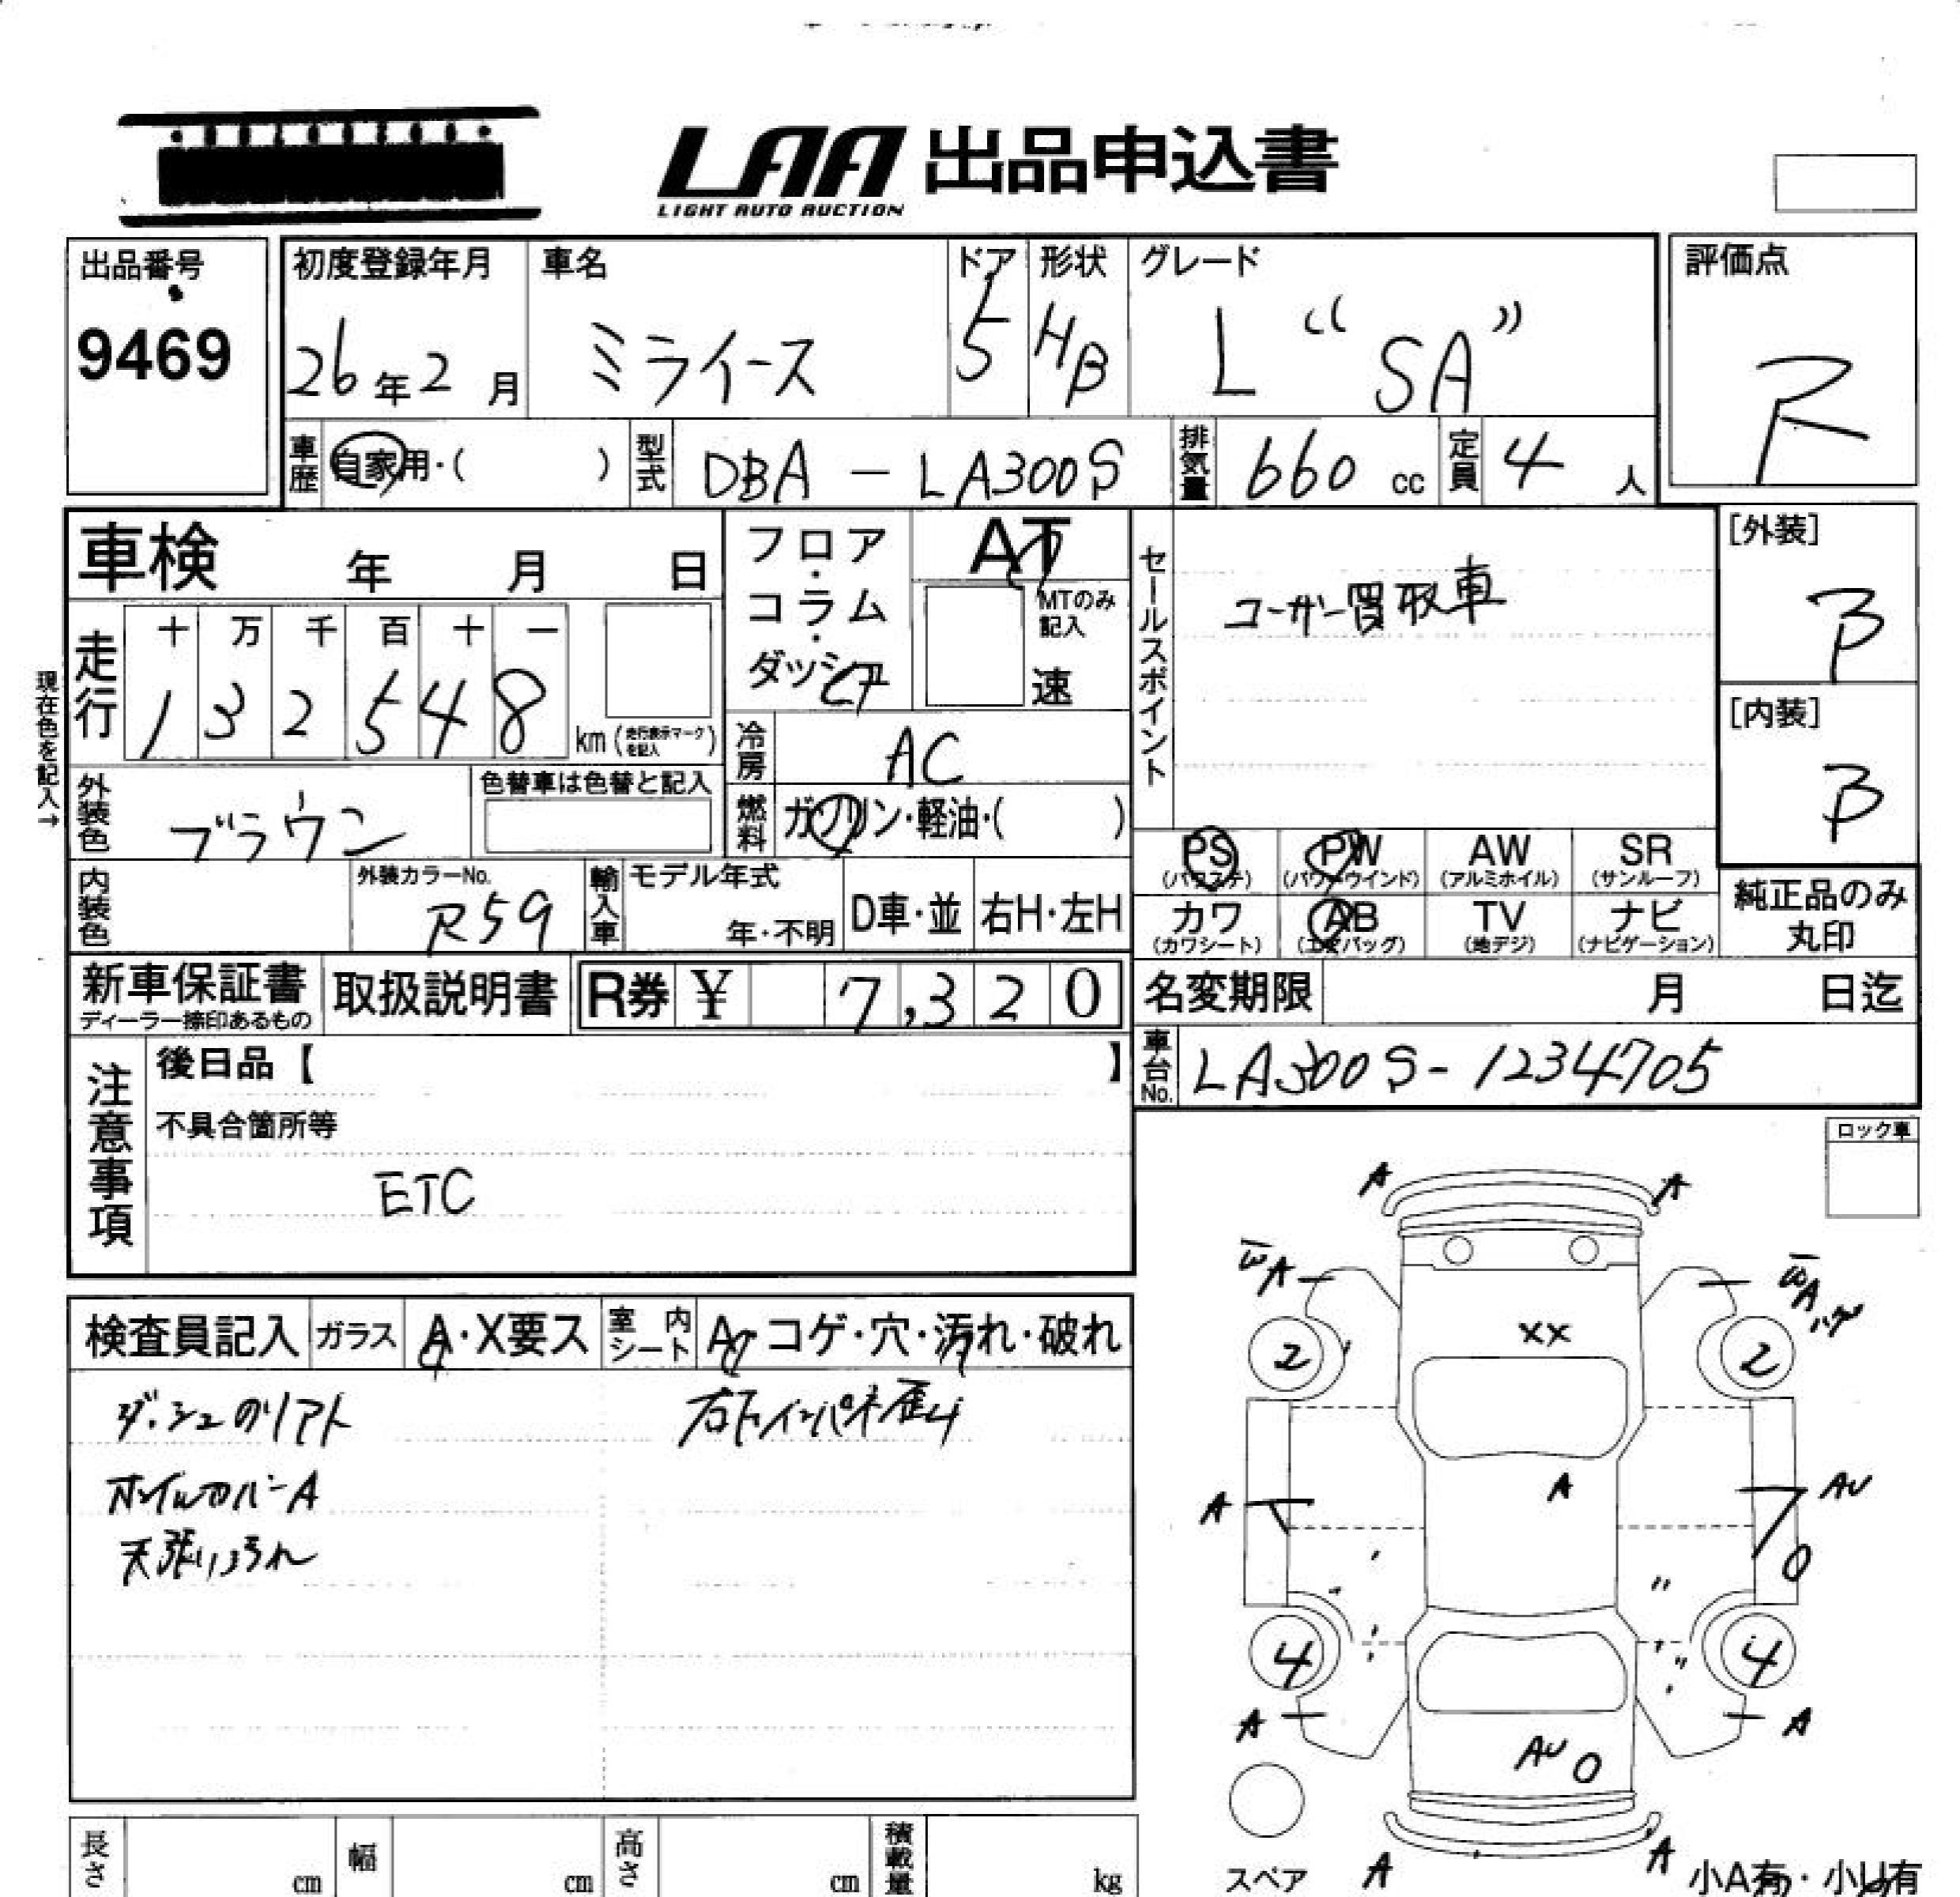 LAA 出品申込書
LIGHT AUTO AUCTION
出品番号
9469
初度登録年月
26年2月
車名
ミライース
ドア
5
形状
HB
グレード
L “SA”
評価点
R
車歴 自家用・( )
型式 DBA－LA300S
排気量 660 cc
定員 4 人
車検 年 月 日
フロア・コラム・ダッシュ
AT
MTのみ記入
速
セールスポイント
ユーザー買取車
[外装]
B
[内装]
B
現在色を記入→
走行
十 万 千 百 十 一
1 3 2 5 4 8
km (走行表示マークを記入)
冷房 AC
燃料 ガソリン・軽油・( )
外装色 ブラウン
色替車は色替と記入
内装色
外装カラーNo.
R59
輸入車
モデル年式
年・不明
D車・並
右H・左H
PS (パワステ)
PW (パワーウインド)
AW (アルミホイル)
SR (サンルーフ)
カワ (カワシート)
AB (エアバッグ)
TV (地デジ)
ナビ (ナビゲーション)
純正品のみ
丸印
新車保証書
ディーラー捺印あるもの
取扱説明書
R券 ¥ 7,320
名変期限 月 日迄
車台No. LA300S-1234705
注意事項
後日品【 】
不具合箇所等
ETC
ロック車
検査員記入
ガラス A・X要ス
室内シート A・コゲ・穴・汚れ・破れ
ホイルカバーA
天張りよごれ
A A
A A
2 XX 2
A
A AU
0
4 4
A A
AU 0
スペア
A A
小A有・小U有
長さ cm
幅 cm
高さ cm
積載量 kg